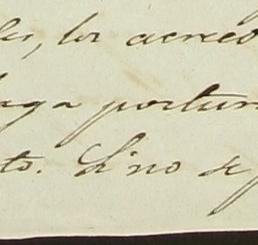 les, los acreed
haga fortun
to. Si no se